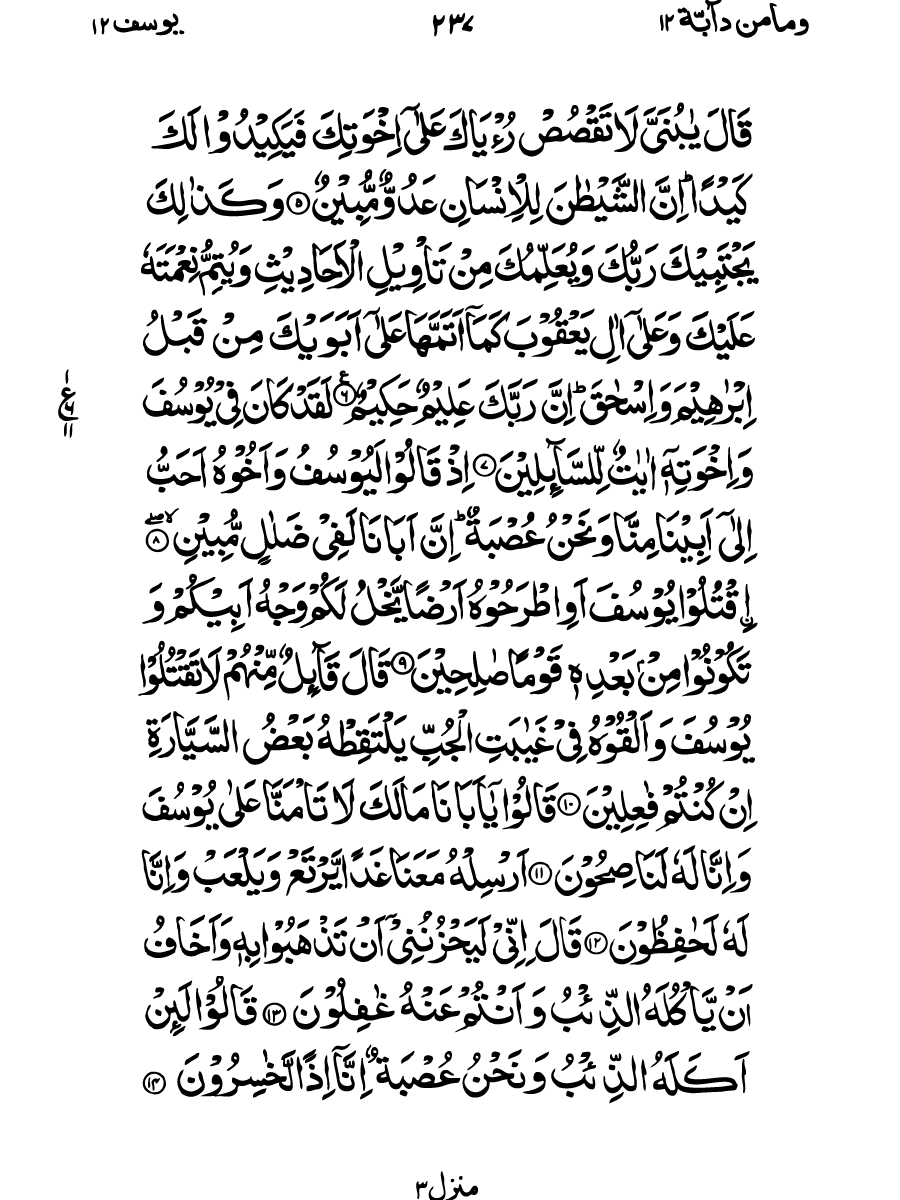 ومامن دآبّة ۱۲ ۲۳۷ یوسف ۱۲
قَالَ یٰبُنَیَّ لَا تَقْصُصْ رُءْیَاكَ عَلٰۤی اِخْوَتِكَ فَیَكِیْدُوْا لَكَ
كَیْدًا ؕ اِنَّ الشَّیْطٰنَ لِلْاِنْسَانِ عَدُوٌّ مُّبِیْنٌ ۵ وَكَذٰلِكَ
یَجْتَبِیْكَ رَبُّكَ وَیُعَلِّمُكَ مِنْ تَاْوِیْلِ الْاَحَادِیْثِ وَیُتِمُّ نِعْمَتَهٗ
عَلَیْكَ وَعَلٰۤی اٰلِ یَعْقُوْبَ كَمَاۤ اَتَمَّهَا عَلٰۤی اَبَوَیْكَ مِنْ قَبْلُ
اِبْرٰهِیْمَ وَاِسْحٰقَ ؕ اِنَّ رَبَّكَ عَلِیْمٌ حَكِیْمٌ ۶ ع لَقَدْ كَانَ فِیْ یُوْسُفَ
ع ۶ ۱۱
وَاِخْوَتِهٖۤ اٰیٰتٌ لِّلسَّآىِٕلِیْنَ ۷ اِذْ قَالُوْا لَیُوْسُفُ وَاَخُوْهُ اَحَبُّ
اِلٰۤی اَبِیْنَا مِنَّا وَنَحْنُ عُصْبَةٌ ؕ اِنَّ اَبَانَا لَفِیْ ضَلٰلٍ مُّبِیْنِ ۸ ۖۙ
ِ۟اقْتُلُوْا یُوْسُفَ اَوِ اطْرَحُوْهُ اَرْضًا یَّخْلُ لَكُمْ وَجْهُ اَبِیْكُمْ وَ
تَكُوْنُوْا مِنْۢ بَعْدِهٖ قَوْمًا صٰلِحِیْنَ ۹ قَالَ قَآىِٕلٌ مِّنْهُمْ لَا تَقْتُلُوْا
یُوْسُفَ وَاَلْقُوْهُ فِیْ غَیٰبَتِ الْجُبِّ یَلْتَقِطْهُ بَعْضُ السَّیَّارَةِ
اِنْ كُنْتُمْ فٰعِلِیْنَ ۱۰ قَالُوْا یٰۤاَبَانَا مَالَكَ لَا تَاْمَنَّا عَلٰی یُوْسُفَ
وَاِنَّا لَهٗ لَنَاصِحُوْنَ ۱۱ اَرْسِلْهُ مَعَنَا غَدًا یَّرْتَعْ وَیَلْعَبْ وَاِنَّا
لَهٗ لَحٰفِظُوْنَ ۱۲ قَالَ اِنِّیْ لَیَحْزُنُنِیْۤ اَنْ تَذْهَبُوْا بِهٖ وَاَخَافُ
اَنْ یَّاْكُلَهُ الذِّئْبُ وَاَنْتُمْ عَنْهُ غٰفِلُوْنَ ۱۳ قَالُوْا لَىِٕنْ
اَكَلَهُ الذِّئْبُ وَنَحْنُ عُصْبَةٌ اِنَّاۤ اِذًا لَّخٰسِرُوْنَ ۱۴
منزل ۳